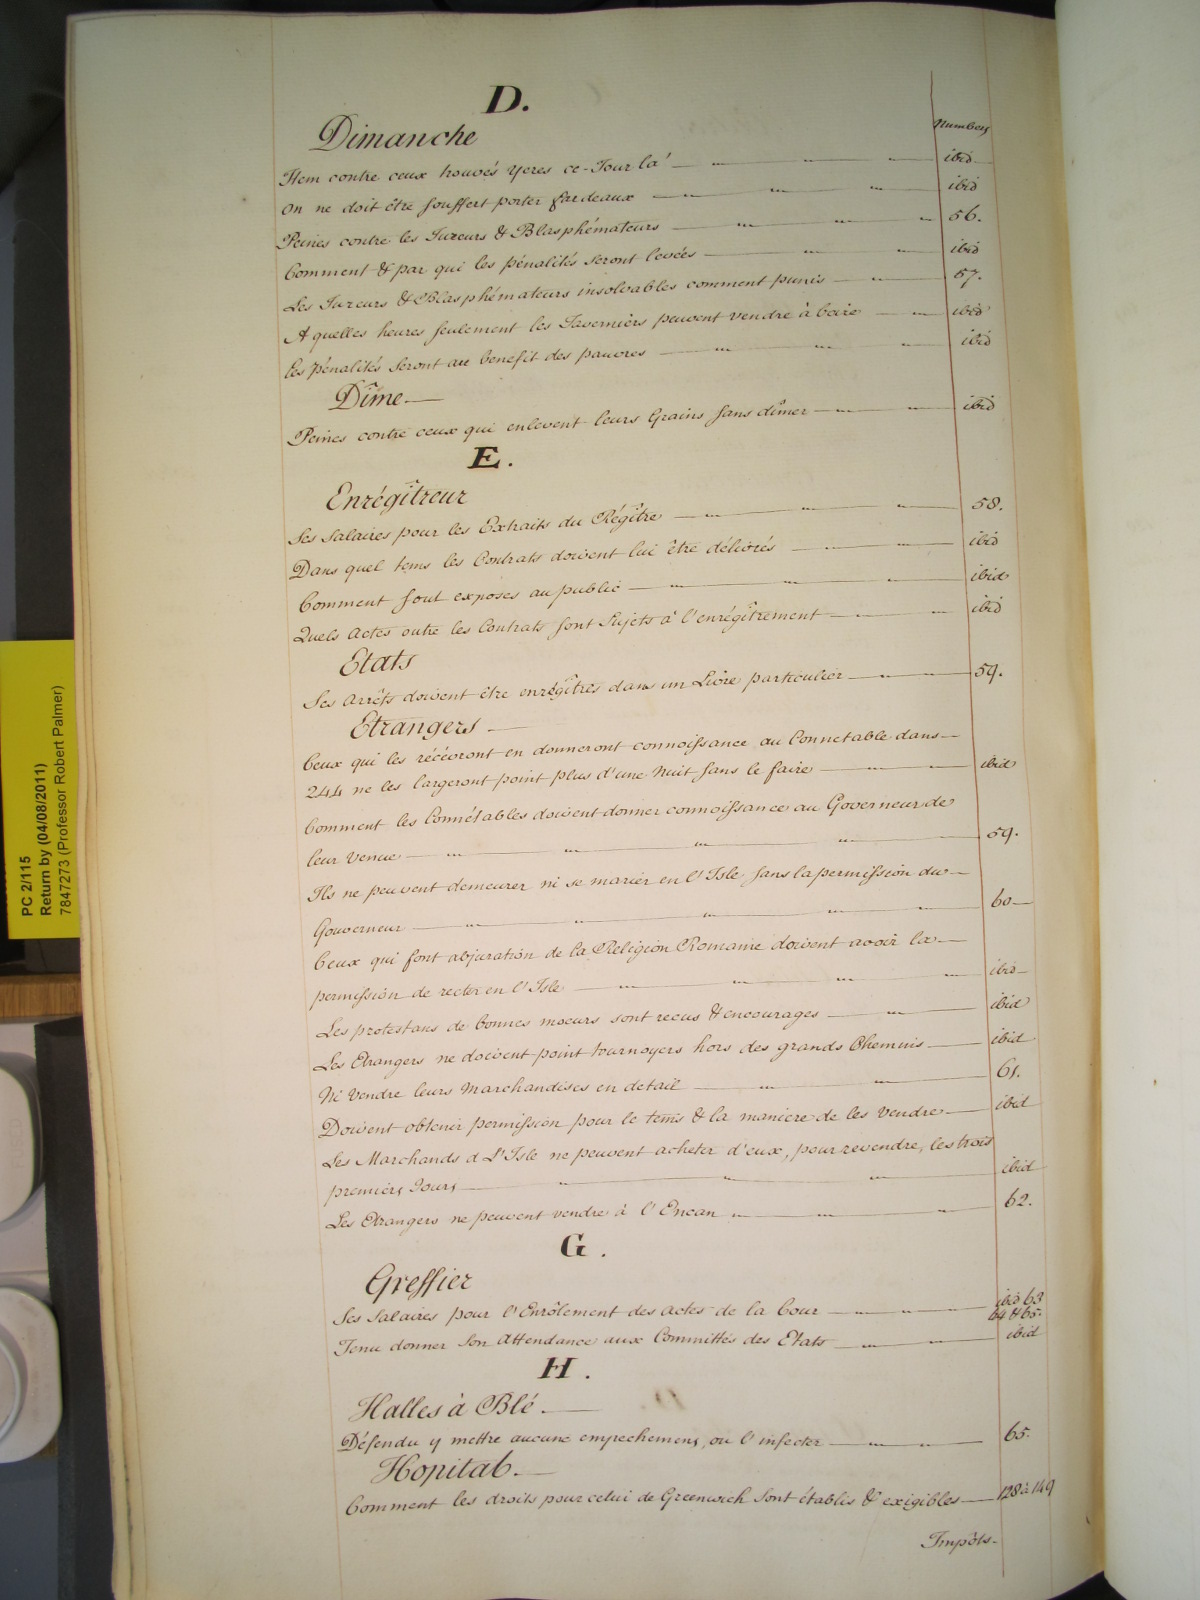 D.
Numbers
Dimanche
Item contre ceux trouvés yvres ce-Jour là ibid
On ne doit être souffert porter fardeaux ibid
Peines contre les Jureurs & Blasphémateurs 56.
Comment & par qui les pénalités seront levées ibid
Les Jureurs & Blasphémateurs insolvables comment punis 57.
A quelles heures seulement les Taverniers peuvent vendre à boire ibid
Les pénalités seront au benefit des pauvres ibid
Dîme
Peines contre ceux qui enlevent leurs Grains sans dîmer ibid
E.
Enrégîtreur
Ses Salaires pour les Extraits du Régître 58.
Dans quel tems les Contrats doivent lui être délivrés ibid
Comment sont exposes au public ibid
Quels Actes outre les Contrats sont Sujets à l'enrégîtrement ibid
Etats
Ses Arrêts doivent être enrégîtrés dans un Livre particulier 59.
Etrangers
Ceux qui les récévront en donneront connoissance au Connetable dans
244 ne les largeront point plus d'une Nuit sans le faire ibid
Comment les Connétables doivent donner connoissance au Governeur de
leur Venue 59.
Ils ne peuvent demeurer ni se marier en l'Isle sans la permission du
Gouverneur 60
Ceux qui font abjuration de la Religion Romaine doivent avoir la
permission de rester en l'Isle ibid
Les protestans de bonnes moeurs sont recus & encourages ibid
Les Etrangers ne doivent point tournoyers hors des grands Chemins ibid
Ni Vendre leurs Marchandises en detail 61.
Doivent obtenir permission pour le tems & la maniere de les Vendre ibid
Les Marchands d L'Isle ne peuvent acheter d'eux, pour revendre, les trois
premiers Jours ibid
Les Etrangers ne peuvent vendre à l'Encan 62.
G.
Greffier
Ses Salaires pour l'Enrôlement des Actes de la Cour ibid 63
64 & 65.
Tenu donner son Attendance aux Committés des Etats ibid
H.
Halles à Blé.
Défendu y mettre aucune empechemens, ou l'infecter 65.
Hopital.
Comment les droits pour celui de Greenwich sont établis & exigibles 128 à 149
Impôts.
PC 2/115
Return by (04/08/2011)
7847273 (Professor Robert Palmer)